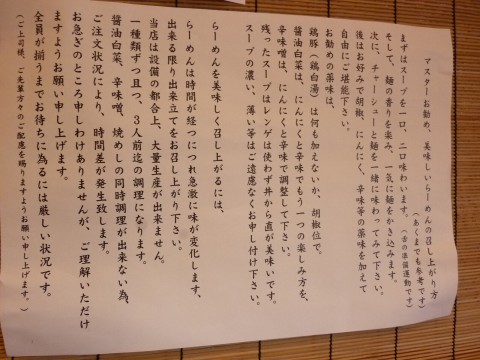 マスターお勧め、美味しいらーめんの召し上がり方
(あくまでも参考です)
まずはスープを一口、二口味わいます。(舌の準備運動です)
そして、麺の香りを楽しみ、一気に麺をかき込みます。
次に、チャーシューと麺を一緒に味わってみて下さい。
後はお好みで胡椒、にんにく、辛味等の薬味を加えて
自由にご堪能下さい。
お勧めの薬味は、
鶏豚(鶏白湯)は何も加えないか、胡椒位で。
醤油白菜は、にんにくと辛味でもう一つの楽しみ方を、
辛味噌は、にんにくと辛味で調整して下さい。
残ったスープはレンゲは使わず丼から直が美味いです。
スープの濃い、薄い等はご遠慮なくお申し付け下さい。
らーめんを美味しく召し上がるには、
らーめんは時間が経つにつれ急激に味が変化します、
出来る限り出来立てをお召し上がり下さい。
当店は設備の都合上、大量生産が出来ません。
一種類ずつ且つ、3人前迄の調理になります。
醤油白菜、辛味噌、焼めしの同時調理が出来ない為、
ご注文状況により、時間差が発生致します。
お急ぎのところ申しわけありませんが、ご理解いただけ
ますようお願い申し上げます。
全員が揃うまでお待ちに為るには厳しい状況です。
(ご上司様、ご先輩方々のご配慮を賜りますようお願い申し上げます。)